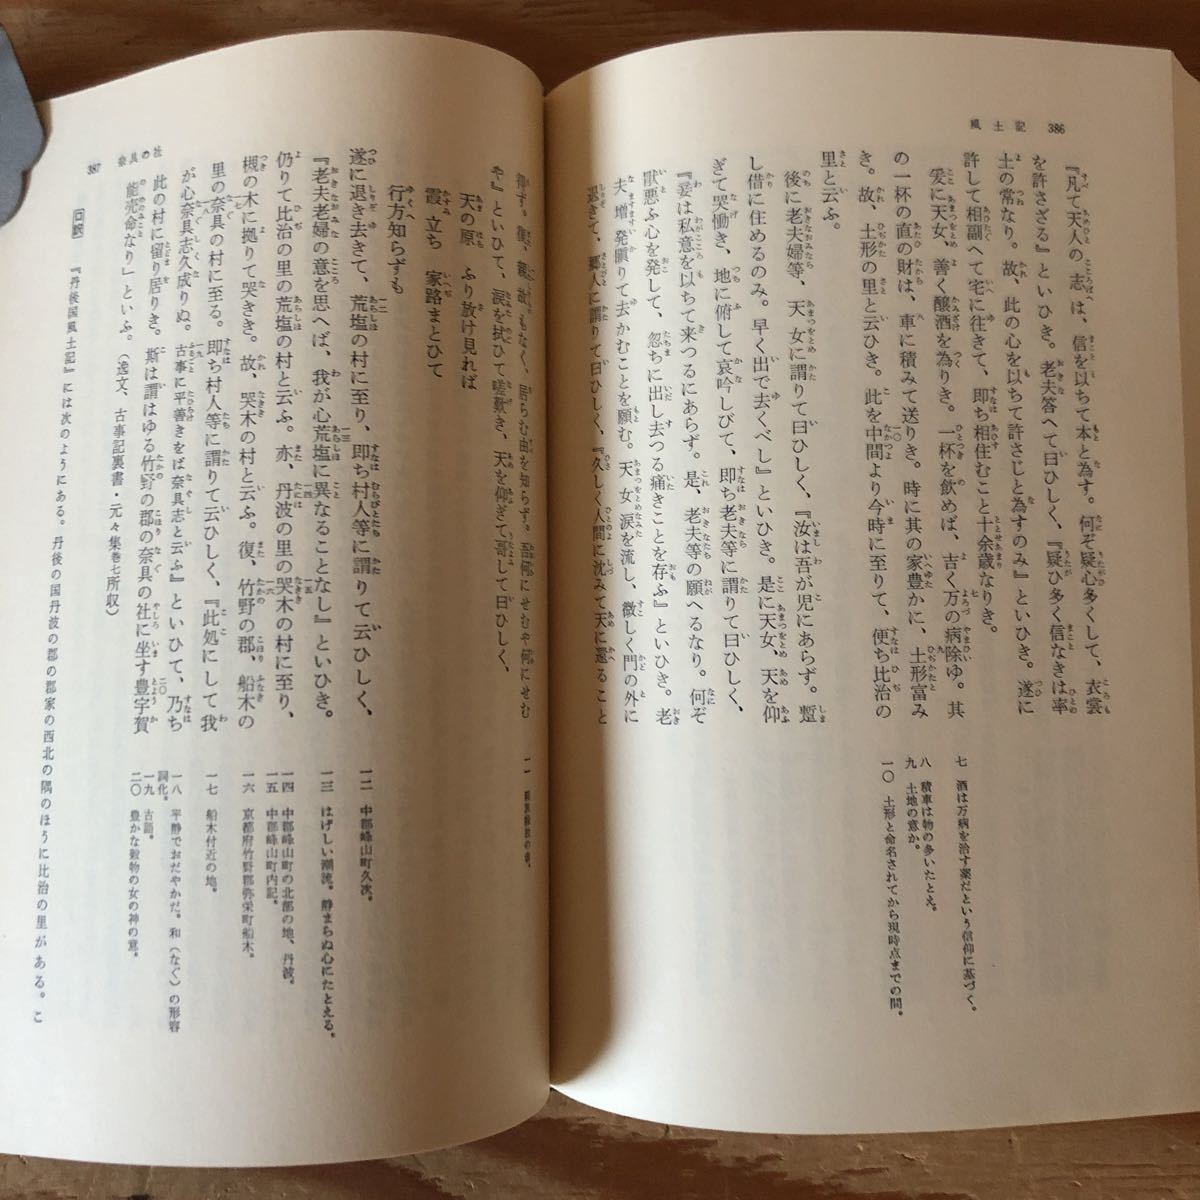 風土記 386
『凡て天人の志は、信を以ちて本と為す。何ぞ疑心多くして、衣裳
を許さざる』といひき。老夫答へて曰ひしく、『疑ひ多く信なきは率
土の常なり。故、此の心を以ちて許さじと為すのみ』といひき。遂に
許して相副へて宅に往きて、即ち相住むこと十余歳なりき。
爰に天女、善く醸酒を為りき。一杯を飲めば、吉く万の病除ゆ。其
の一杯の直の財は、車に積みて送りき。時に其の家豊かに、土形富み
き。故、土形の里と云ひき。此を中間より今時に至りて、便ち比治の
里と云ふ。
後に老夫婦等、天女に謂りて曰ひしく、『汝は吾が児にあらず。蹔
し借に住めるのみ。早く出で去くべし』といひき。是に天女、天を仰
ぎて哭慟き、地に俯して哀吟しびて、即ち老夫等に謂りて曰ひしく、
『妾は私意を以ちて来つるにあらず。是、老夫等の願へるなり。何ぞ
猒悪ふ心を発して、忽ちに出し去つる痛きことを存ふ』といひき。老
夫、増発瞋りて去かむことを願む。天女涙を流し、微しく門の外に
退きて、郷人に謂りて曰ひしく、『久しく人間に沈みて天に還ること
七 酒は万病を治す薬だという信仰に基づく。
八 積車は物の多いたとえ。
九 土地の意か。
一〇 土形と命名されてから現時点までの間。
387 奈具の社
得ず。復、親故もなく、居らむ由を知らず。吾何にせむや何にせむ
や』といひて、涙を拭ひて嗟歎き、天を仰ぎて哥して曰ひしく、
天の原 ふり放け見れば
霞立ち 家路まとひて
行方知らずも
遂に退き去きて、荒塩の村に至り、即ち村人等に謂りて云ひしく、
『老夫老婦の意を思へば、我が心荒塩に異なることなし』といひき。
仍りて比治の里の荒塩の村と云ふ。亦、丹波の里の哭木の村に至り、
槻の木に拠りて哭きき。故、哭木の村と云ふ。復、竹野の郡、船木の
里の奈具の村に至る。即ち村人等に謂りて云ひしく、『此処にして我
が心奈具志久成りぬ。古事に平善きをば奈具志と云ふ』といひて、乃ち
此の村に留り居りき。斯は謂はゆる竹野の郡の奈具の社に坐す豊宇賀
能売命なり」といふ。(逸文、古事記裏書・元々集巻七所収)
口訳 『丹後国風土記』には次のようにある。丹後の国丹波の郡の郡家の西北の隅のほうに比治の里がある。こ
一二 中郡峰山町久次。
一三 はげしい潮流。静まらぬ心にたとえる。
一四 中郡峰山町の北部の地、丹波。
一五 中郡峰山町内記。
一六 京都府竹野郡弥栄町船木。
一七 船木付近の地。
一八 平静でおだやかだ。和(なぐ)の形容
詞化。
一九 古語。
二〇 豊かな穀物の女の神の意。